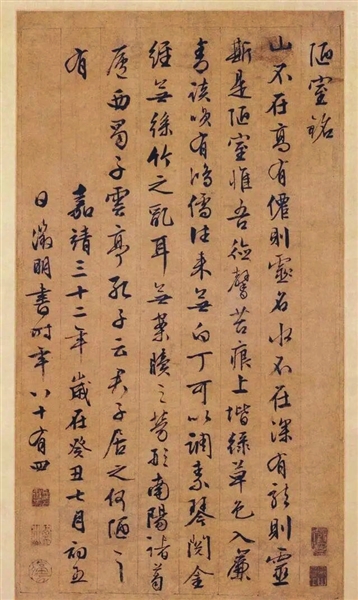 陋室銘
山不在高有僊則靈名水不在深有龍則靈
斯是陋室惟吾德馨苔痕上堦綠草色入簾
青談咲有鴻儒往來無白丁可以調素琴閱金
經無絲竹之亂耳無案牘之勞形南陽諸葛
廬西蜀子雲亭孔子云君子居之何陋之
有 嘉靖三十二年歲在癸丑七月初五
日徵明書時年八十有四